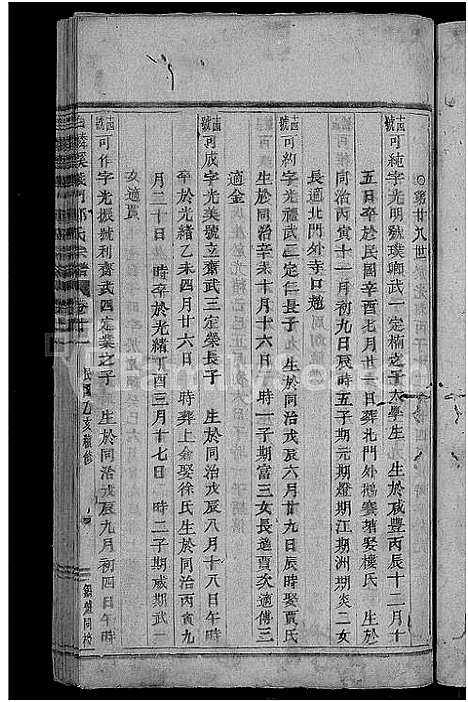 ○第廿九世
號 可純字光明號璞卿武一定楠之子大學生 生於咸豐丙辰十二月十
五日卒於民國辛酉七月廿一日葬北門外 娶樓氏 生於
同治丙寅十一月初九日辰時五子期元期燈期江期洲期炎二女
長適北門外寺口趙
號 可約字光禮武三定仁長子 生於同治戊辰六月廿九日辰時娶賈氏
生於同治辛未十月十六日 時一子期富三女長適賈次適傅三
適金
號 可成字光美號立齋武三定榮長子 生於同治戊辰八月十八日午時
卒於光緒乙未四月廿六日 時葬上 娶徐氏生於同治丙寅九
月二十日 時卒於光緒丁酉三月十七日 時二子期威期武一
女適賈
號 可作字光振號利齋武四定業之子 生於同治戊辰九月初四日午時
白麟溪義門鄭氏宗譜 卷十 民國乙亥續修